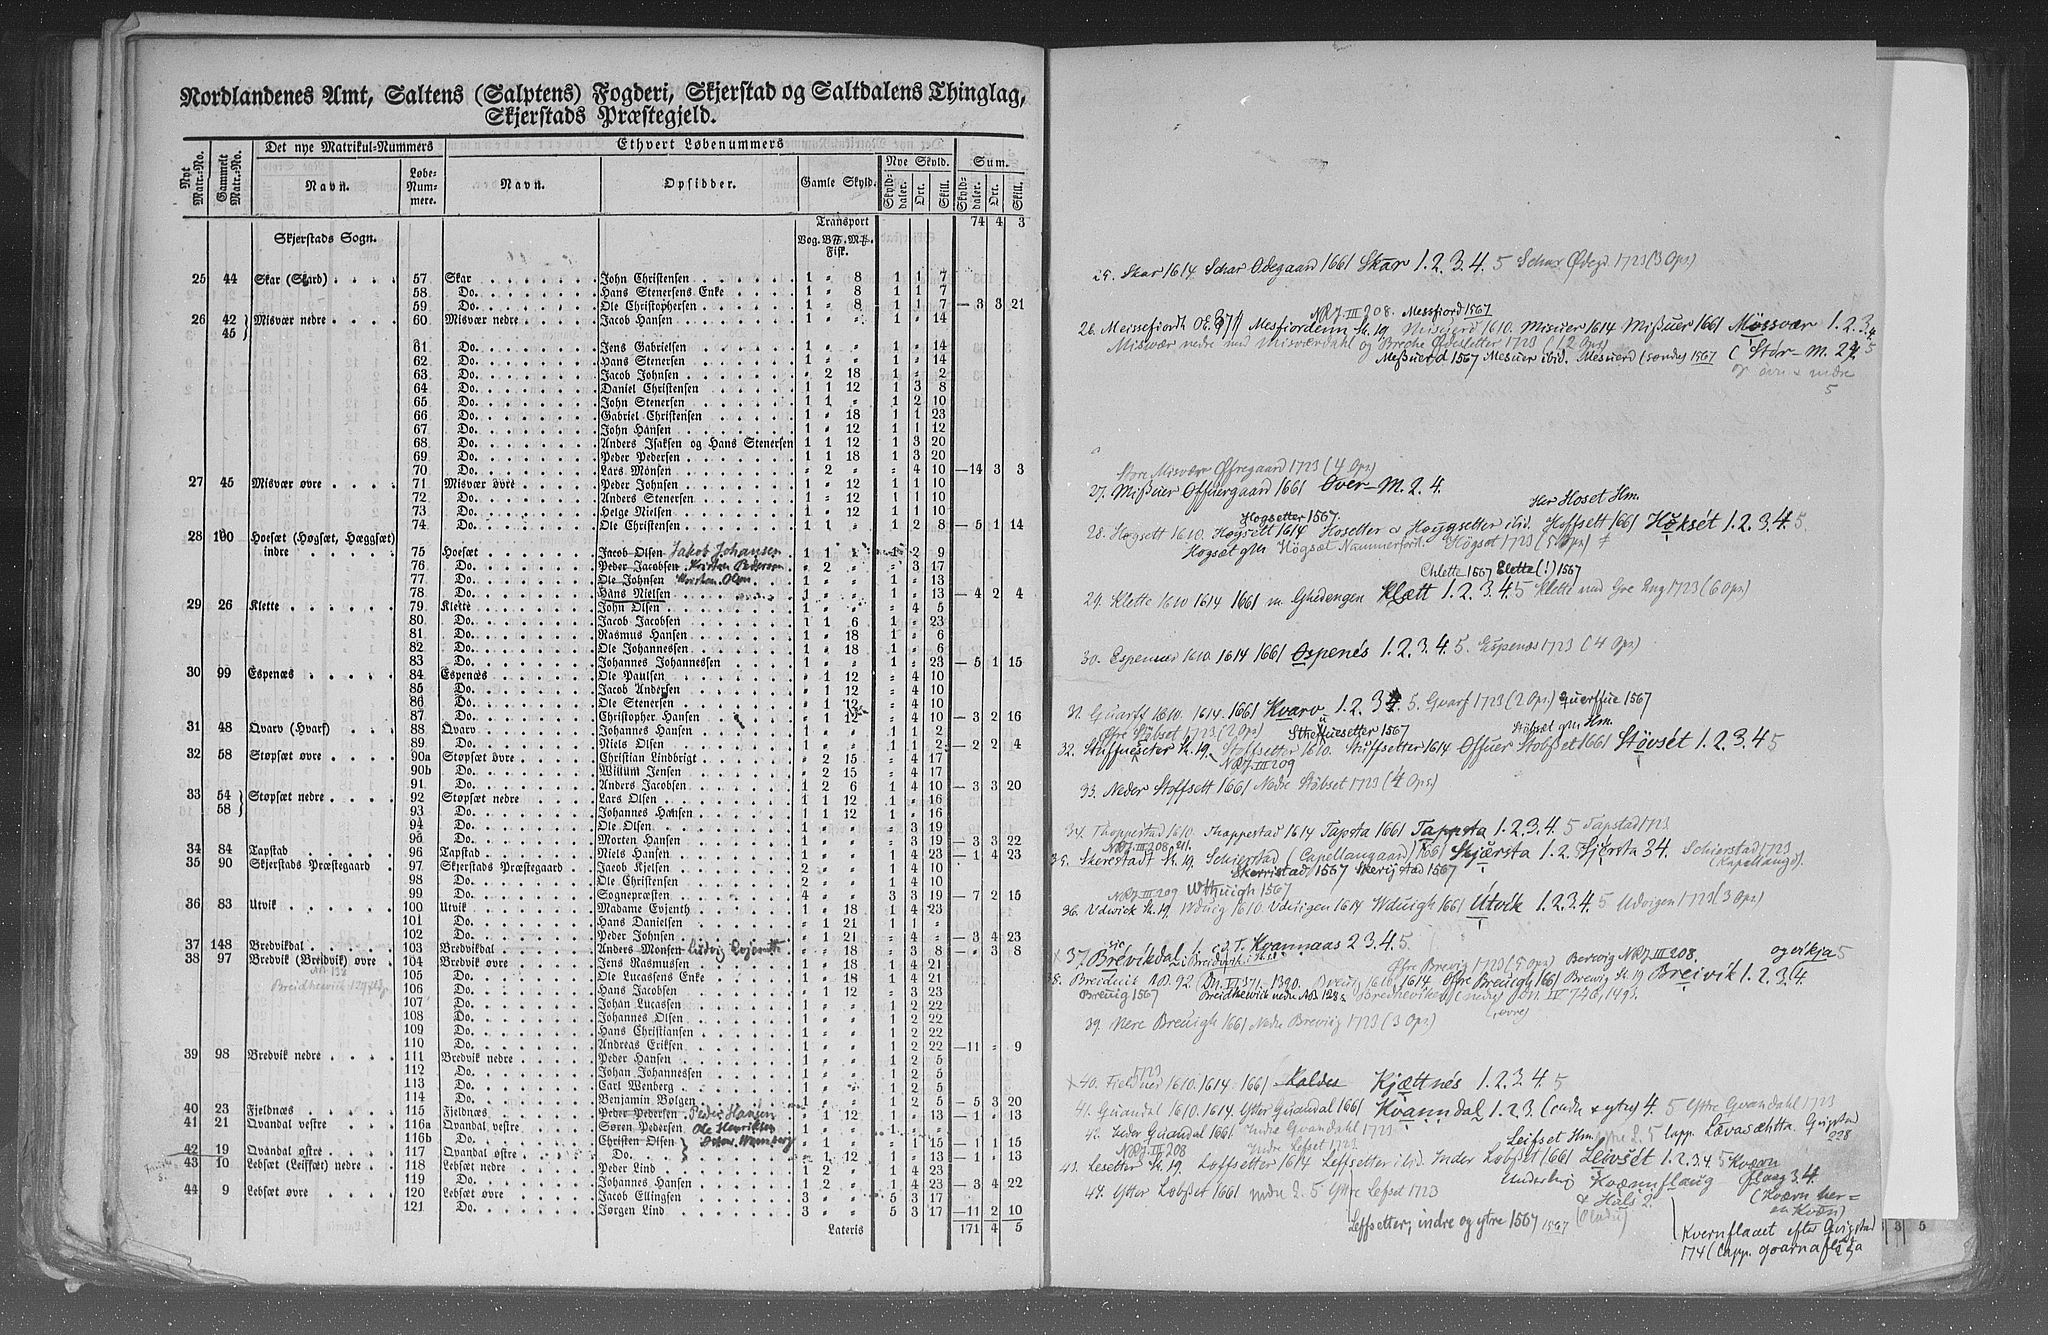 Nordlandenes Amt, Saltens (Salptens) Fogderi, Skjerstad og Saltdalens Thinglag,
Skjerstads Præstegjeld.
Nyt Matr.-No. Gammelt Matr.-No. Det nye Matrikul-Nummers Ethvert Løbenummers
Navn. Løbe-Nummere. Navn. Opsidder. Gamle Skyld. Nye Skyld. Sum.
Skylddaler. Ort. Skill. Skylddaler. Ort. Skill.
Transport 74 4 3
Skjerstads Sogn. Vog. B℔. M℔. Fisk.
25 44 Skar (Skard) 57 Skar John Christensen 1 " 8 1 1 7
58 Do. Hans Stenersens Enke 1 " 8 1 1 7
59 Do. Ole Christophersen 1 " 8 1 1 7 — 3 3 21
26 42 45 } Misvær nedre 60 Misvær nedre Jacob Hansen 1 " " 1 " 14
61 Do. Jens Gabrielsen 1 " " 1 " 14
62 Do. Hans Stenersen 1 " " 1 " 14
63 Do. Jacob Johnsen " 2 18 1 " 2
64 Do. Daniel Christensen 1 1 12 1 3 8
65 Do. John Stenersen 1 1 " 1 2 10
66 Do. Gabriel Christensen 1 " 18 1 1 23
67 Do. John Hansen 1 " 12 1 1 12
68 Do. Anders Isaksen og Hans Stenersen 1 1 12 1 3 20
69 Do. Peder Pedersen 1 1 18 1 3 20
70 Do. Lars Monsen " 2 " " 4 10 —14 3 3
27 45 Misvær øvre 71 Misvær øvre Peder Johnsen 1 " 12 1 1 10
72 Do. Anders Stenersen 1 " 12 1 1 10
73 Do. Helge Nielsen 1 " 12 1 1 10
74 Do. Ole Christensen 1 1 " 1 2 8 — 5 1 14
28 100 Hoesæt (Høgsæt, Hæggsæt) indre 75 Hoesæt Jacob Olsen Jakob Johansen 1 1 " 1 2 9
76 Do. Peder Jacobsen Kristen Pedersen " 2 " " 3 17
77 Do. Ole Johnsen Kristen Olsen 1 " " 1 " 13
78 Do. Hans Nielsen 1 " " 1 " 13 — 4 2 4
29 26 Klette 79 Klette John Olsen 1 " " " 4 5
80 Do. Jacob Jacobsen 1 1 6 1 " 23
81 Do. Rasmus Hansen 1 " 18 1 " 6
82 Do. Ole Johannessen 1 " 18 1 " 6
83 Do. Johannes Johannessen 1 " " 1 " 23 — 5 1 15
30 99 Espenæs 84 Espenæs Ole Paulsen " 1 12 " 4 10
85 Do. Jacob Andersen " 1 12 " 4 10
86 Do. Ole Stenersen " 1 12 " 4 10
87 Do. Christopher Hansen " 1 12 " 4 10 — 3 2 16
31 48 Qvarv (Hvarf) 88 Qvarv Johannes Hansen 1 " " 1 1 2
89 Do. Niels Olsen 1 " " 1 1 2 — 2 2 4
32 58 Støpsæt øvre 90a Støpsæt øvre Christian Lindbrigt " 2 15 " 4 17
90b Do. Willum Jensen " 2 15 " 4 17
91 Do. Anders Jacobsen 1 2 6 1 4 10 — 3 3 20
33 54 58 } Støpsæt nedre 92 Støpsæt nedre Lars Olsen 1 1 12 1 " 16
93 Do. Johannes Hansen 1 1 12 1 " 16
94 Do. Ole Olsen 1 " " " 3 19
95 Do. Morten Hansen 1 " " " 3 19 — 3 3 22
34 84 Tapstad 96 Tapstad Niels Hansen 1 " " 1 4 23 — 1 4 23
35 90 Skjerstads Præstegaard 97 Skjerstads Præstegaard Jacob Kjelsen 2 " " 1 4 10
98 Do. Ole Christensen 2 " " 1 4 10
99 Do. Sognepræsten 4 " " 3 3 19 — 7 2 15
36 83 Utvik 100 Utvik Madame Evjenth 1 " 18 1 4 23
101 Do. Hans Danielsen " 1 21 1 " "
102 Do. Peder Johnsen " 1 21 " 4 " — 3 4 23
37 148 Bredvikdal 103 Bredvikdal Anders Monsen Ludvig Evjenth " " 18 " 3 8 — " 3 8
38 97 Bredvik (Breidvik) øvre 104 Bredvik øvre Jens Rasmussen 1 " 18 1 4 21
105 Do. Ole Lucassens Enke 1 " 18 1 4 21
106 Do. Hans Jacobsen " 1 12 " 3 23
107 Do. Johan Lucassen 1 " " 1 2 22
108 Do. Johannes Olsen 1 " " 1 2 22
109 Do. Hans Christiansen 1 " " 1 2 22
110 Do. Andreas Eriksen 1 " " 1 2 22 —11 " 9
39 98 Bredvik nedre 111 Bredvik nedre Peder Hansen 1 " " 1 2 5
112 Do. Johan Johannessen 1 " " 1 2 5
113 Do. Carl Wenberg 1 " " 1 2 5
114 Do. Benjamin Bolgen 1 " " 1 2 5 — 5 3 20
40 23 Fjeldnæs 115 Fjeldnæs Peder Pedersen Peder Hansen " 1 12 1 " 13 — 1 " 13
41 21 Qvandal vestre 116a Qvandal vestre Søren Pedersen Ole Henriksen 1 " " 1 " "
116b Do. Christen Olsen " 1 " " 1 15 — 1 1 15
42 19 Qvandal østre 117 Qvandal østre Do. " 1 12 1 " 13 — 1 " 13
43 10 Lebsæt (Leifsæt) nedre 118 Lebsæt nedre Peder Lind 1 2 " 1 4 23
119 Do. Johannes Hansen 1 2 " 1 4 23 — 3 4 22
44 9 Lebsæt øvre 120 Lebsæt øvre Jacob Ellingsen 3 " " 5 3 17
121 Do. Jørgen Lind 3 " " 5 3 17 —11 2 10
Lateris 171 4 5
25. Skar 1614 Schar Ødegaard 1661 Skar 1.2.3.4. 5 Schar Ødegd 1723 (3 Ops.)
NRJ. III 208. Messfiord 1567
Mesfiordenn St. 19 Misuerd 1610. Misuer 1614 Mißuer 1661 Mössvær 1.2.3.4.
Misvær nedre med Misværdahl og Breche Ødesletter 1723 (12 Ops)
Meßuerd 1567 Mesuer ibid. Mesuerd (søndre) 1567 (Stór-M. 24 5
og øvre & nedre
5
Store Misvær Øfregaard 1723 (4 Ops.)
27. Mißuer Offuergaard 1661 Over-M. 2.4.
Hogsetter 1567. Her Hoset Hm.
28. Høgsett 1610. Høgsett 1614 Hosetter & Høggsetter ibid. Hoffsett 1661 Höksét 1.2.3.4 5.
Høgsæt gbn Högsæt Nummerfort. Høgset 1723 (5 Ops)
Chlette 1567 Elette (!) 1567
29. Klette 1610 1614 1661 m. Ghedengen Klætt 1.2.3.4 5 Klette med Gre Eng 1723 (6 Ops.)
30. Espenned 1610. 1614 1661 Ospenés 1.2.3.4. 5. Espenæs 1723 (4 Ops)
31. Guarff 1610. 1614. 1661 Kvarv 1.2.3 4. 5. Gvarf 1723 (2 Ops.) Querffue 1567
Øfre Støbset 1723 (2 Ops) Streffuesetter 1567 Støbset gbn Hm.
32. Stuffuesæter St. 19. Stoffsetter 1610. Stuffsetter 1614 Offuer Stobset 1661 Stövsét 1.2.3.4 5
NRJ. III 209
33. Neder Stoffsett 1661 Nedre Stöbset 1723 (4 Ops.)
34. Thoppestad 1610. Thappestad 1614 Tapsta 1661 Tappsta 1.2.3.4. 5 Tapstad 1723
NRJ. III 208, 211.
35. Skerestadt St. 19. Schierstad (Capellangaard) 1661 Skjærsta 1.2. Sjérsta 3 4. Schierstad 1723 (Kapellangd).
Skerristad 1567 Skerijstad 1567
NRJ. III 209 Wthuigh 1567
36. Vdwick St. 19 Wduig 1610. Vduigen 1614 Wduigh 1661 Útvik 1.2.3.4. 5 Udvigen 1723 (3 Ops.)
37. Brevikdal 1. Kvannaas 2 3.4. 5.
Øfre Brevig 1723 (5 Ops) Berevig NRJ. III 208. og vikja 5
38. Breiduik AB. 92. Dn. VI 371. 1390. 1614 Øfre Breuigh 1661 Brewig St. 19 Breivik 1. 2. 3. 4.
Breuig 1567 Breidhewiick nedre AB. 128
39. Nere Breuigh 1661 Nedre Breviig 1723 (3 Ops.)
1723
40. Fieldned 1610. 1614. 1661 Kaldes Kjættnés 1.2.3.4. 5
41. Guandal 1610. 1614. Ytter Guandal 1661 Kvanndal 1.2.3. (indre & ytre) 4. 5 Yttre Gvandahl 1723
42. Inder Guandal 1661. Indre Gvandahl 1723
NRJ. III 208 Indre Lefset 1723 Leifset Hm. lapp. Lævasæhtta. Qvigstad 228
43. Lesetter St. 19. Loffsetter 1614 Leffsetter ibid. Inder Lobset 1661 Leivsét 1.2.3.4 5
44. Ytter Lobset 1661 Yttre Lefset 1723 Underbrug Kvænnflaug
(Kværn her= en Kvæn)
Leffsetter, indre og ytre 1567 1567
Kvernflaaet efter Qvigstad
174 (lapp. goarnaflúdda
3 5